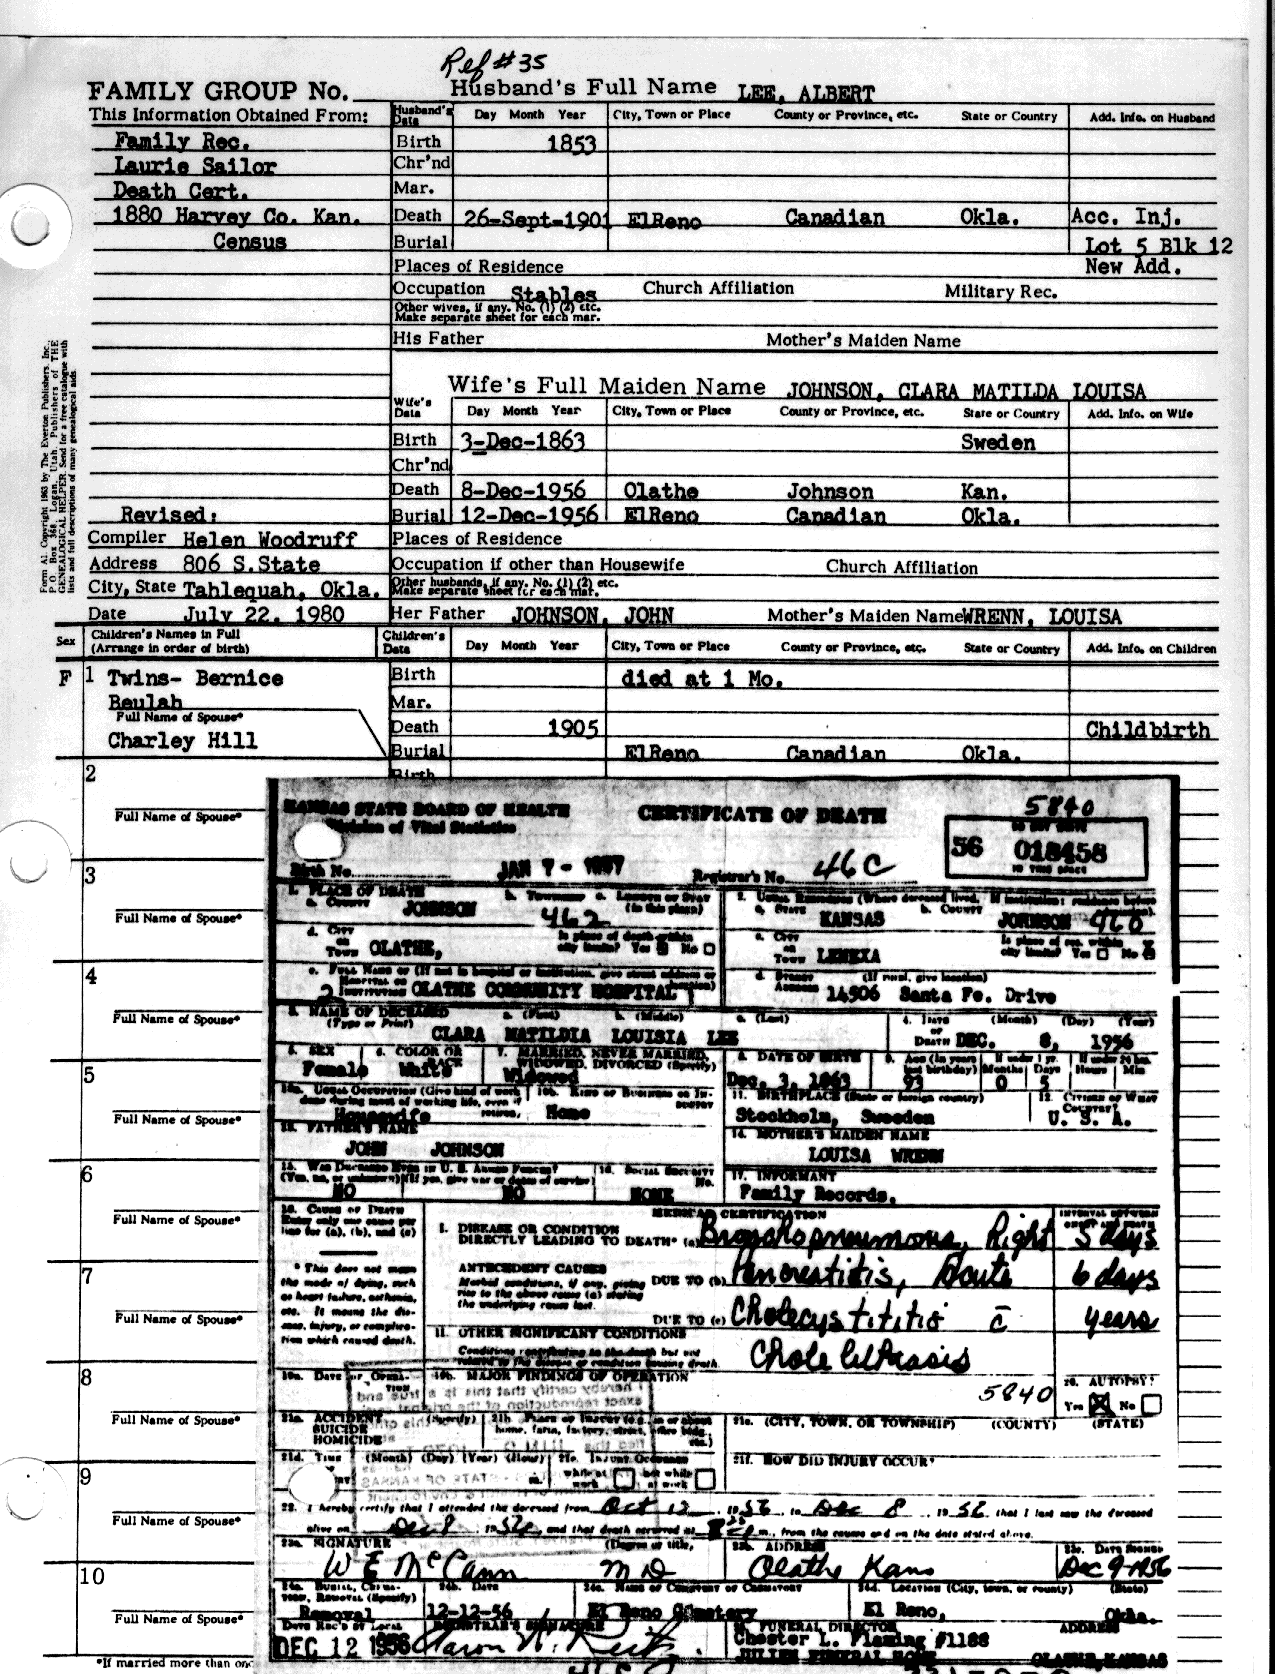 Ref #35
FAMILY GROUP No. Husband's Full Name LEE, ALBERT
This Information Obtained From: Husband's Data Day Month Year City, Town or Place County or Province, etc. State or Country Add. Info. on Husband
Family Rec. Birth 1853
Laurie Sailor Chr'nd
Death Cert. Mar.
1880 Harvey Co. Kan. Death 26-Sept-1901 ElReno Canadian Okla. Acc. Inj.
Census Burial Lot 5 Blk 12
Places of Residence New Add.
Occupation Stables Church Affiliation Military Rec.
Other wives, if any. No. (1) (2) etc.
Make separate sheet for each mar.
His Father Mother's Maiden Name
Form A1. Copyright 1963 by The Everton Publishers, Inc.,
P.O. Box 368, Logan, Utah. Publishers of THE
GENEALOGICAL HELPER. Send for a free catalogue with
lists and full descriptions of many genealogical aids
Wife's Full Maiden Name JOHNSON, CLARA MATILDA LOUISA
Wife's Data Day Month Year City, Town or Place County or Province, etc. State or Country Add. Info. on Wife
Birth 3-Dec-1863 Sweden
Chr'nd
Death 8-Dec-1956 Olathe Johnson Kan.
Revised: Burial 12-Dec-1956 ElReno Canadian Okla.
Compiler Helen Woodruff Places of Residence
Address 806 S.State Occupation if other than Housewife Church Affiliation
City, State Tahlequah, Okla. Other husbands, if any. No. (1) (2) etc.
Make separate sheet for each mar.
Date July 22, 1980 Her Father JOHNSON, JOHN Mother's Maiden Name WRENN, LOUISA
Sex Children's Names in Full (Arrange in order of birth) Children's Data Day Month Year City, Town or Place County or Province, etc. State or Country Add. Info. on Children
F 1 Twins- Bernice Birth died at 1 Mo.
Beulah Mar.
Full Name of Spouse* Death 1905 Childbirth
Charley Hill Burial ElReno Canadian Okla.
2 Birth
Full Name of Spouse*
3
Full Name of Spouse*
4
Full Name of Spouse*
5
Full Name of Spouse*
6
Full Name of Spouse*
7
Full Name of Spouse*
8
Full Name of Spouse*
9
Full Name of Spouse*
10
Full Name of Spouse*
*If married more than
KANSAS STATE BOARD OF HEALTH CERTIFICATE OF DEATH 5840
Division of Vital Statistics
56 018458
Birth No. JAN 7 - 1957 Registrar's No. 46C
1. PLACE OF DEATH b. Township c. Length of Stay (In this place) 2. Usual Residence (Where deceased lived. If institution: residence before
a. County JOHNSON 462 a. State KANSAS b. County JOHNSON 460
d. City or Town OLATHE, Is place of death within city limits? Yes No c. City or Town LENEXA Is place of res. within city limits? Yes No
e. Full Name of (If not in hospital or institution, give street address or location) Hospital or Institution OLATHE COMMUNITY HOSPITAL d. Street Address (If rural, give location) 14506 Santa Fe. Drive
3. NAME OF DECEASED (Type or Print) a. (First) b. (Middle) c. (Last) 4. Date of Death (Month) (Day) (Year)
CLARA MATILDIA LOUISIA LEE DEC. 8, 1956
5. SEX 6. COLOR OR RACE 7. MARRIED, NEVER MARRIED, WIDOWED, DIVORCED (Specify) 8. DATE OF BIRTH 9. Age (In years last birthday) If under 1 yr. Months Days If under 24 hrs. Hours Min
Female White Widowed Dec. 3, 1863 93 0 5
10a. Usual Occupation (Give kind of work done during most of working life, even if retired) 10b. Kind of Business or Industry 11. BIRTHPLACE (State or foreign country) 12. Citizen of What Country?
Housewife Home Stockholm, Sweden U. S. A.
13. FATHER'S NAME 14. MOTHER'S MAIDEN NAME
JOHN JOHNSON LOUISA WRENN
15. Was Deceased Ever in U. S. Armed Forces? (Yes, no, or unknown) (If yes, give war or dates of service) 16. Social Security No. 17. INFORMANT
NO NO NONE Family Records.
18. Cause of Death MEDICAL CERTIFICATION INTERVAL BETWEEN ONSET AND DEATH
Enter only one cause per line for (a), (b), and (c)
I. DISEASE OR CONDITION DIRECTLY LEADING TO DEATH* (a) Bronchopneumonia, Right 5 days
* This does not mean the mode of dying, such as heart failure, asthenia, etc. It means the disease, injury, or complication which caused death.
ANTECEDENT CAUSES DUE TO (b) Pancreatitis, Acute 6 days
Morbid conditions, if any, giving rise to the above cause (a) stating the underlying cause last.
DUE TO (c) Cholecystititis c̄ years
II. OTHER SIGNIFICANT CONDITIONS Cholelithiasis
Conditions contributing to the death but not related to the disease or condition causing death.
19a. Date of Operation 19b. MAJOR FINDINGS OF OPERATION 5840 20. AUTOPSY? Yes No
21a. ACCIDENT SUICIDE HOMICIDE (Specify) 21b. Place of Injury (e.g., in or about home, farm, factory, street, office bldg., etc.) 21c. (CITY, TOWN, OR TOWNSHIP) (COUNTY) (STATE)
21d. Time (Month) (Day) (Year) (Hour) 21e. Injury Occurred While at work Not while at work 21f. HOW DID INJURY OCCUR?
22. I hereby certify that I attended the deceased from Oct 12, 1956, to Dec 8, 1956, that I last saw the deceased
alive on Dec 8 1956, and that death occurred at m., from the cause and on the date stated above.
23a. SIGNATURE (Degree or title) 23b. ADDRESS 23c. Date Signed
W E McCann M D Olathe Kans Dec 9-1956
24a. Burial, Cremation, Removal (Specify) 24b. Date 24c. Name of Cemetery or Crematory 24d. Location (City, town, or county) (State)
Removal 12-12-56 El Reno Cemetery El Reno, Okla.
Date Rec'd by Local REGISTRAR'S SIGNATURE 25. FUNERAL DIRECTOR ADDRESS
DEC 12 1956 Chester L. Flaming #1188
JULIEN FUNERAL HOME OLATHE, KANSAS